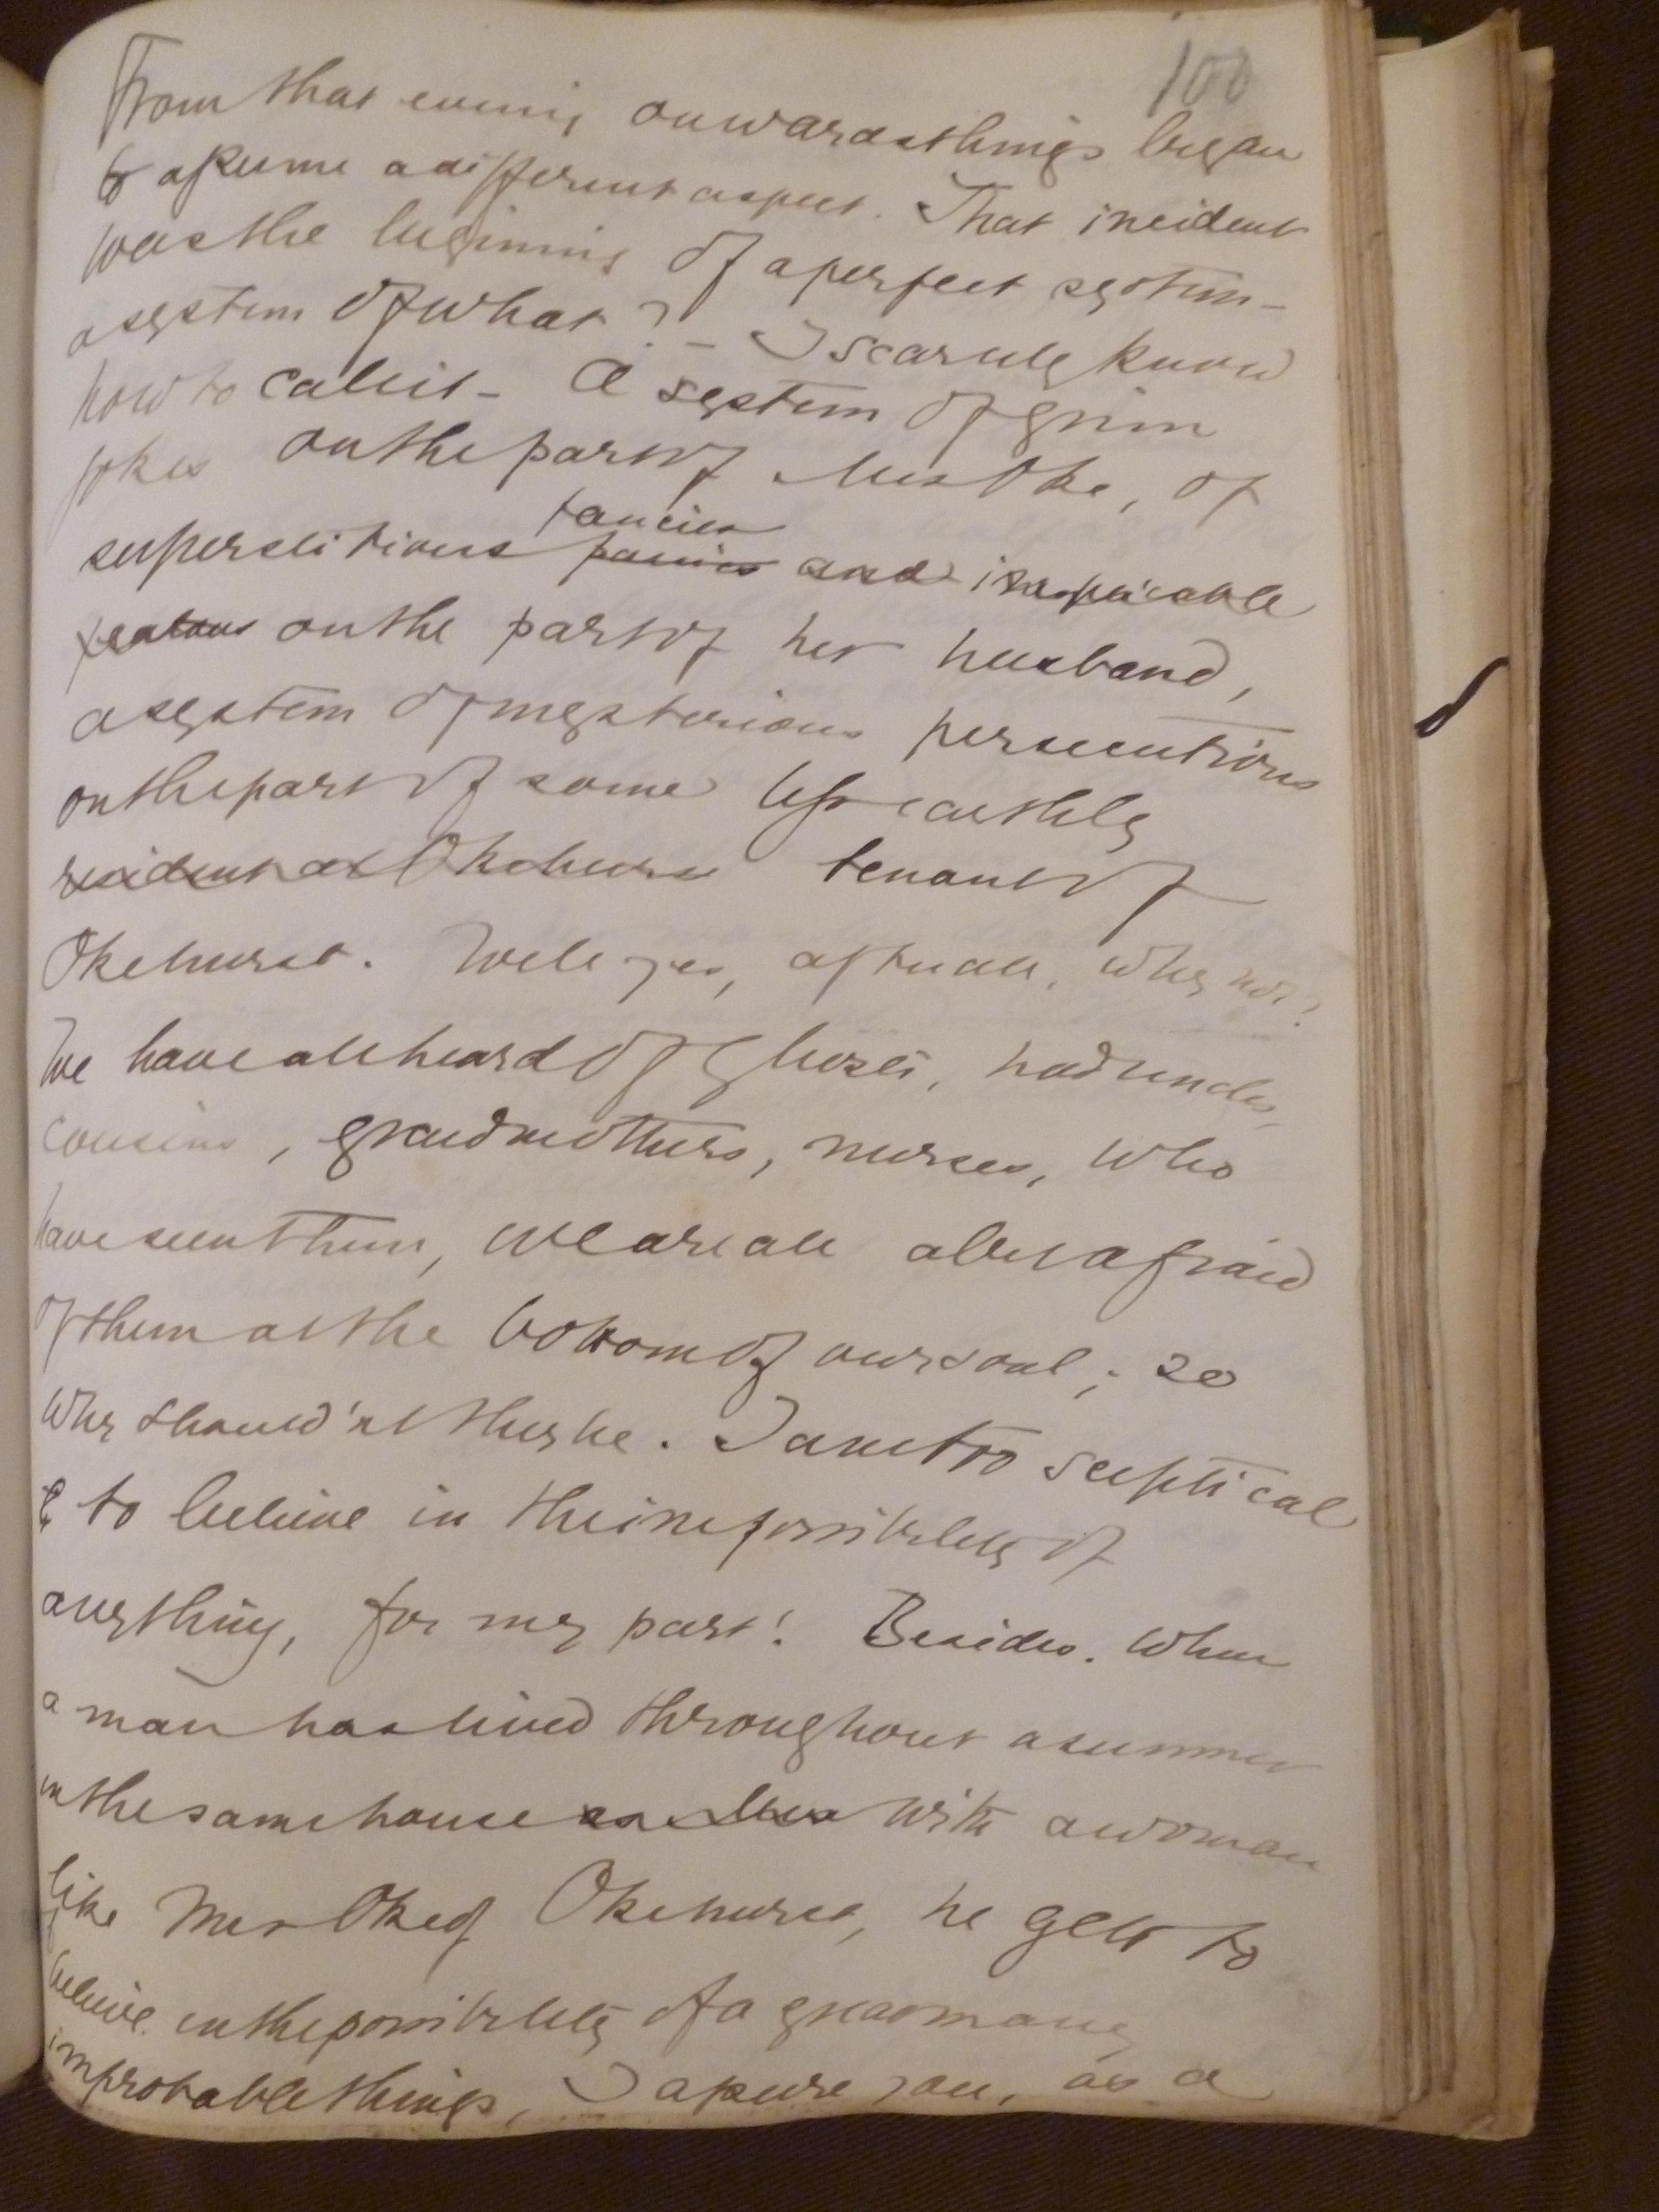 100
From that evening onwards things began
to assume a different aspect. That incident
was the beginning of a perfect system –
a system of what? – I scarcely know
how to call it – A system of grim
jokes on the part of Mrs Oke, of
fancies
superstitious and
on the part of her husband,
a system of mysterious persecutions
on the part of some less earthly
resident at Okehurst tenant of
Okehurst. Well yes, after all, why not?
We have all heard of ghosts, had uncles,
cousins, grandmothers, nurses, who
have seen them, we are all a bit afraid
of them at the bottom of our soul; so
why should'nt they be. I am too sceptical
to believe in the impossibility of
anything, for my part! Besides. When
a man has lived throughout a summer
in the same house with a woman
like Mrs Oke of Okehurst, he gets to
believe in the possibility of a great many
improbable things, I assure you, as a